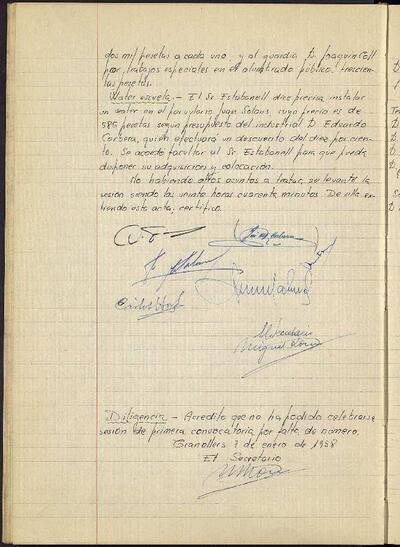 dos mil pesetas a cada uno y al guardia D. Joaquin Coll
por trabajos especiales en el alumbrado público, trescien-
tas pesetas.
Water escuela.- El Sr Estabanell dice precisa instalar
un water en el parvulario Juan Solans, cuyo precio es de
585 pesetas según presupuesto del industrial D. Eduardo
Corbera, quien efectuará un descuento del diez por cien-
to. Se acordó facultar al Sr Estabanell para que pueda
disponer su adquisición y colocación.
No habiendo otros asuntos a tratar, se levanta la
sesión siendo las veinte horas cuarenta minutos. De ella ex-
tiendo este acta, certifico.
Carlos
El Secretario
Miguel
Diligencia - Acredito que no ha podido celebrarse
sesión de primera convocatoria por falta de número.
Granollers 7 de enero de 1958
El Secretario